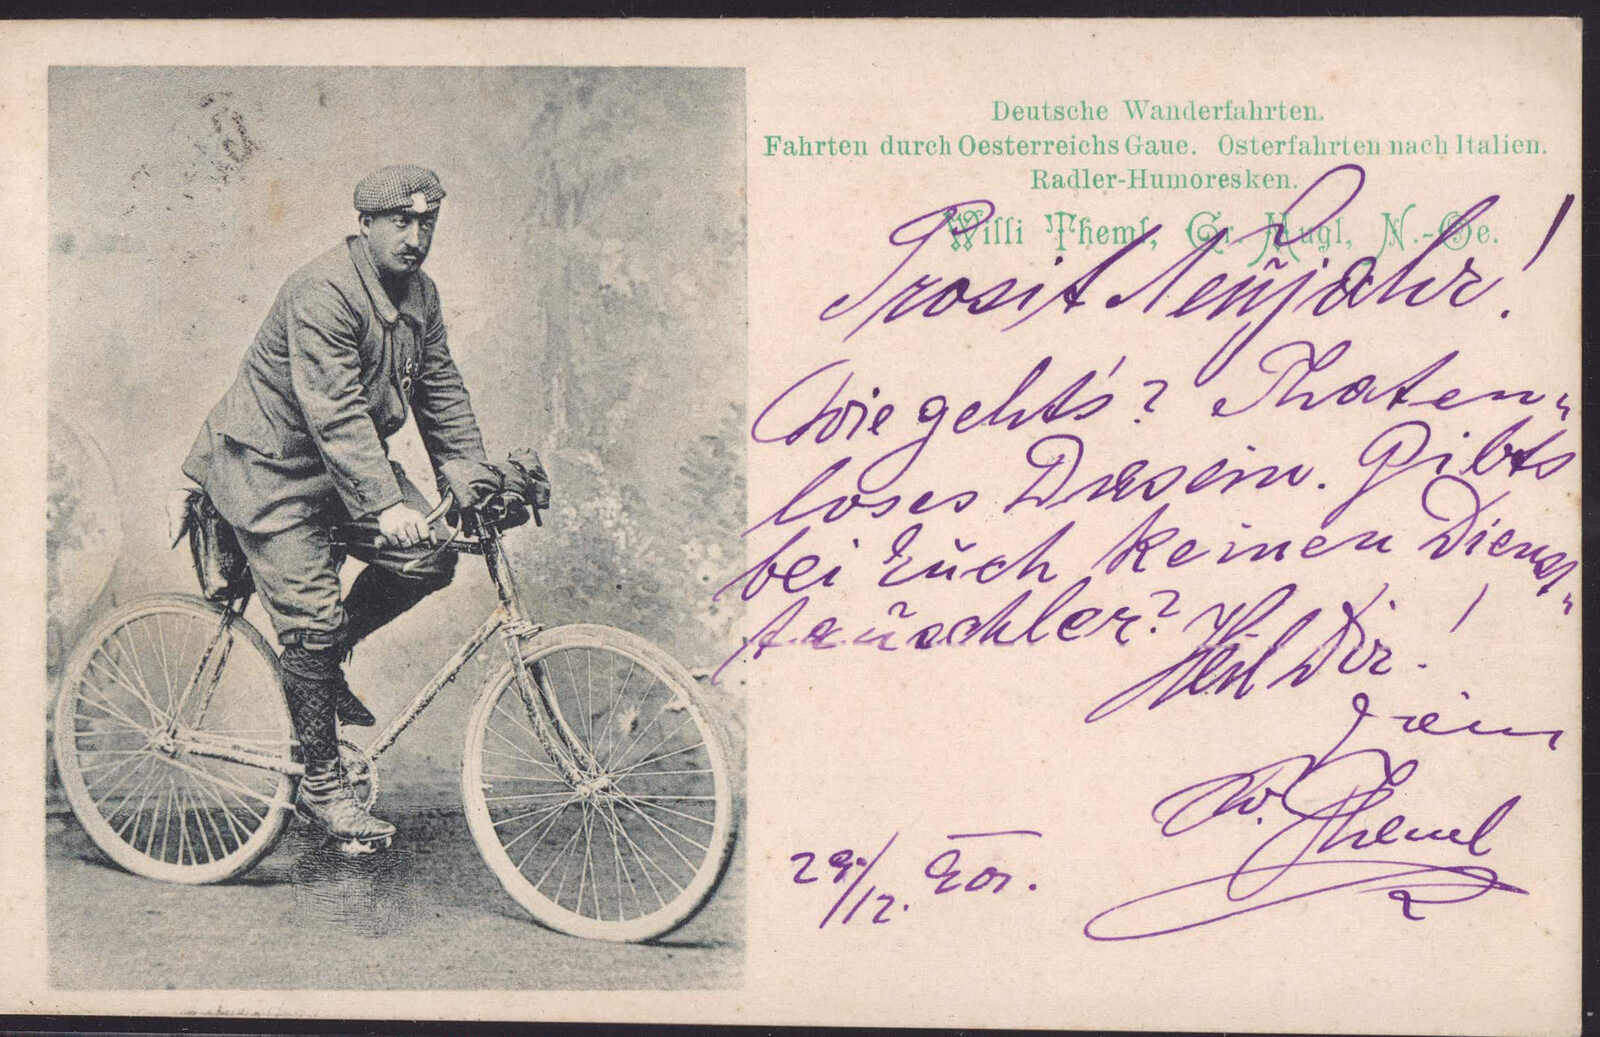 Deutsche Wanderfahrten.
Fahrten durch Oesterreichs Gaue. Osterfahrten nach Italien.
Radler-Humoresken.
Willi Theml, Gr. Mugl, N.-Oe.
Prosit Neujahr!
Wie geht's? Thaten-
loses Dasein. Gibts
bei Euch keinen Dienst-
tauschler?
Heil Dir!
Dein
W. Theml
29/12.